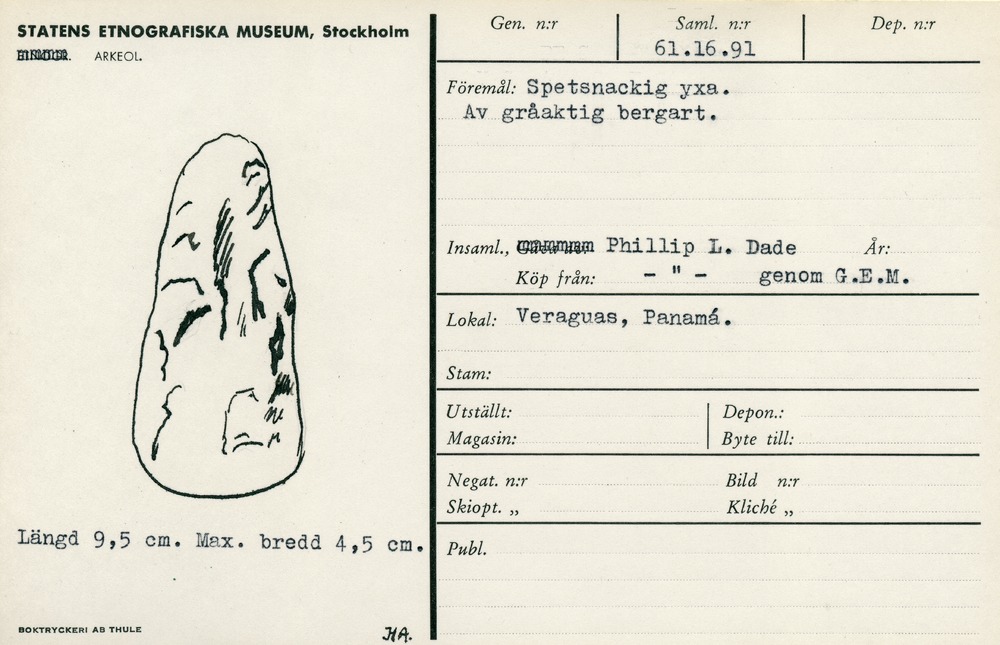 STATENS ETNOGRAFISKA MUSEUM, Stockholm
ARKEOL.
Längd 9,5 cm. Max. bredd 4,5 cm.
BOKTRYCKERI AB THULE
HA.
Gen. n:r
Saml. n:r
61.16.91
Dep. n:r
Föremål: Spetsnackig yxa.
Av gråaktig bergart.
Insaml., Phillip L. Dade År:
Köp från: - " - genom G.E.M.
Lokal: Veraguas, Panamá.
Stam:
Utställt: Depon.:
Magasin: Byte till:
Negat. n:r Bild n:r
Skiopt. „ Kliché „
Publ.